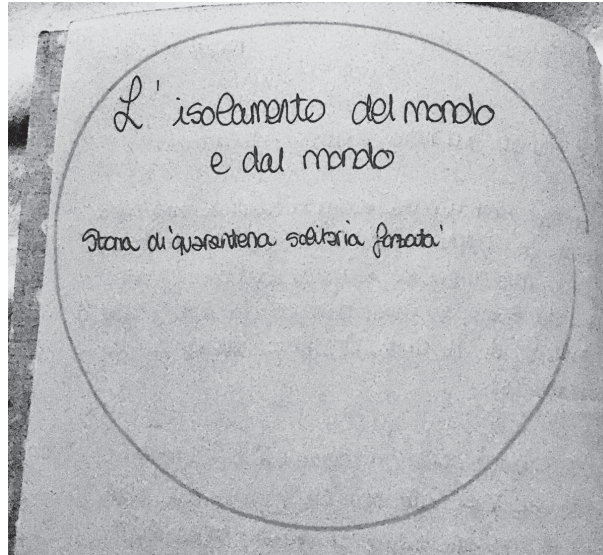 L' isolamento del mondo
e dal mondo
Storia di quarantena solitaria forzata